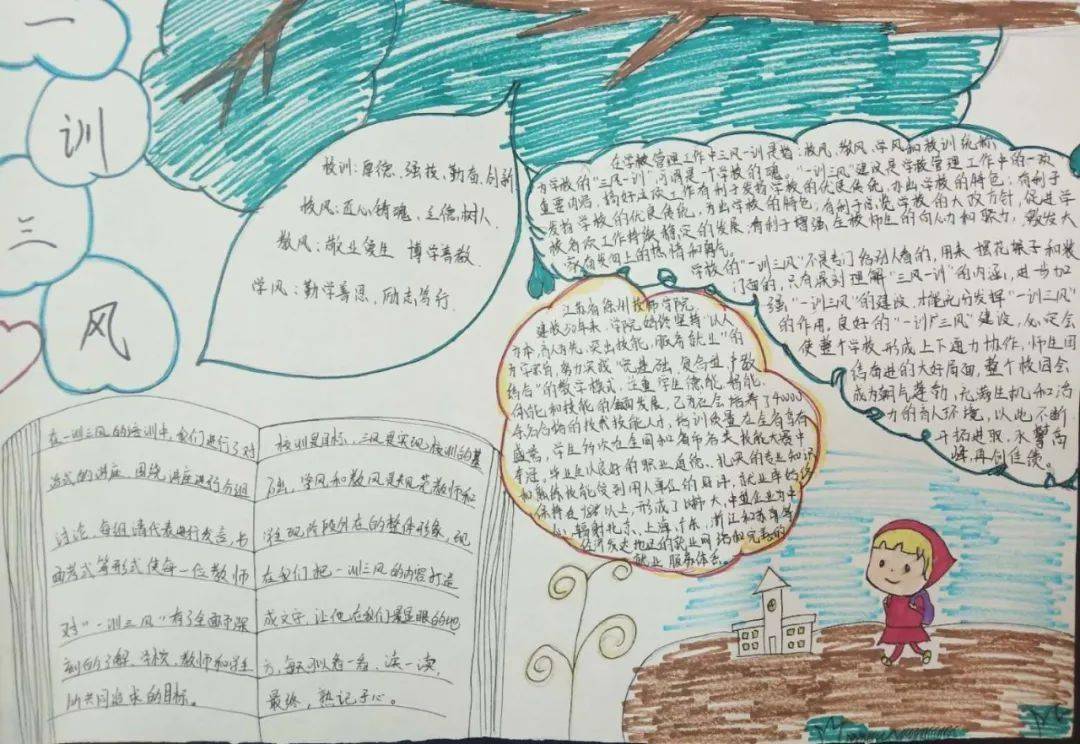 一
训
三
风
校训：厚德、强技、勤奋、创新
校风：匠心铸魂、立德树人
教风：敬业爱生 博学善教
学风：勤学善思、励志笃行
在学校管理工作中三风一训是指：校风、教风、学风和校训统称
为学校的“三风一训”，可谓是一个学校的魂。“一训三风”建设是学校管理工作中的一项
重要内容，搞好这项工作有利于发扬学校的优良传统，办出学校的特色；有利于
发扬学校的优良传统，办出学校的特色；有利于落实学校的大政方针，促进学
校各项工作持续稳定的发展；有利于增强全校师生的向心力和聚力，激发大
家奋发向上的热情和勇气。
学校的“一训三风”不是专门给别人看的，用来摆花架子和装
门面的，只有深刻理解“三风一训”的内涵，进一步加
强“一训三风”的建设，才能充分发挥“一训三风”
的作用。良好的“一训三风”建设，必定会
使整个学校形成上下通力协作，师生团
结奋进的大好局面，整个校园会
成为朝气蓬勃，充满生机和活
力的育人环境，以此不断
开拓进取，永攀高
峰，再创佳绩。
江苏省徐州技师学院
建校50年来，学院始终坚持“以人
为本，育人为先，突出技能，服务就业”的
办学宗旨，努力实践“宽基础、复合型、产教
结合”的教学模式，注重学生德能、智能、
体能和技能的全面发展，已为社会培养了40000
多名合格的技术技能人才，培训质量在全省享有
盛誉，学生多次在全国和省市各类技能大赛中
夺冠，毕业生以良好的职业道德、扎实的专业知识
和熟练技能受到用人单位的好评，就业率始终
保持在98%以上，形成了以特大、中型企业为中
心，辐射北京、上海、广东、浙江和苏南等
经济发达地区的就业网络和完善的
就业服务体系。
在一训三风的培训中，我们进行了对
话式的讲座，围绕讲座进行分组
讨论，每组请代表进行发言，书
面考试等形式使每一位教师
对“一训三风”有了全面而深
刻的了解，学校、教师和学生
所共同追求的目标。
校训是目标，三风是实现校训的基
础，学风和教风是规范教师和
学生现阶段外在的整体形象，现
在我们把一训三风的内容打造
成文字，让他在我们最显眼的地
方，每天都看一看、读一读，
最终，熟记于心。